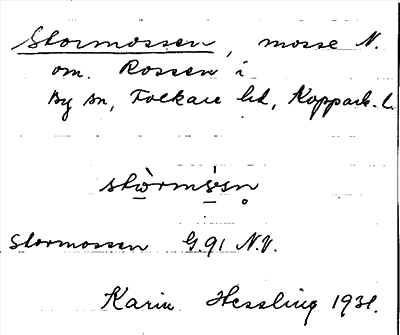 Stormossen, mosse N.
om. Rossen i
By sn, Folkare hd, Kopparb. l.
stòrmósn̥
Stormossen G.91 N.V.
Karin Hessling 1931.